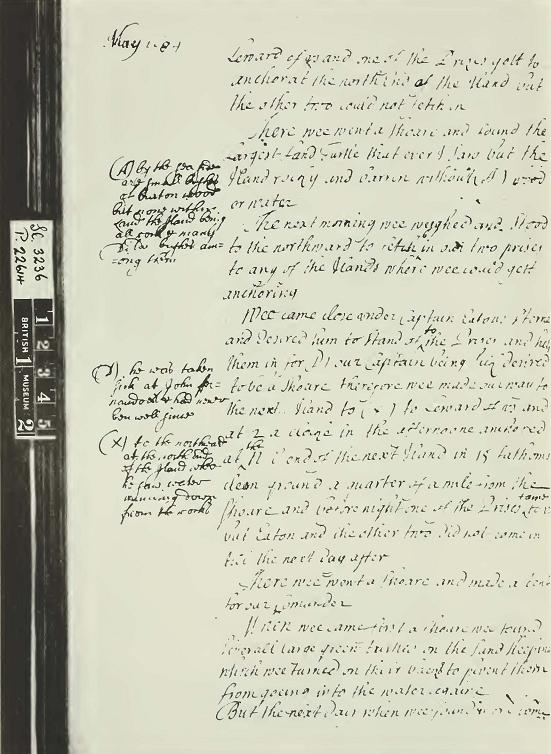 May 1684
Leward of us and one of the Prizes gott to
anchor at the north End of the Iland but
the other two could not fetch in
There wee went a Shoare and found the
Largest Land Turtle that ever I saw but the
Iland rocky and barren without (A) wood
or water
The next morning wee weighed and stood
to the northward to fetch in our two prises
to any of the Ilands where wee could gett
anchoring
Wee came close under Captain Eatons Sterne
and desired him to stand of to the Prizes and help
them in for (I) our Captain being desired
to be a shoare therefore wee made our way to
the next Iland to (x) to Leward of us and
at 2 a clocke in the afternoone anchored
at the N End of the next Iland in 15 fathoms
clean ground a quarter of a mile from the
shoare and before night one of the Prises came to us
but Eaton and the other two did not come in
till the next day after
There wee went a Shoare and made a tent
for our Comander
When wee came first a shoare wee found
severall large green Turtles on the sand
which wee turned on their backs to pvent them
from goeing into the water againe
But the next Day when wee found
(A) by the sea
are small bushes
of burton wood
but none within
land the Iland being
all rock & many
bushes am=
ong them
(I) he was taken
sick at John fer=
nandoes & had never
ben well since
(X) to the northward
at the north end
of the Iland
he saw water
running down
from the rocks
SL. 3236
P. 22614
BRITISH MUSEUM
1 2
1 2 3 4 5